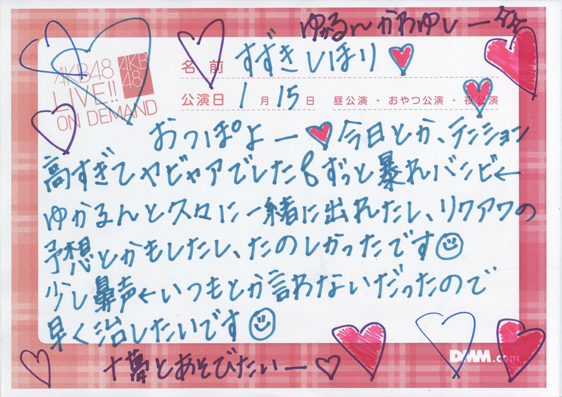 ゆるんかわゆしー
AKB48
LIVE!!
ON DEMAND
AKB
48
名前 すずきしほり
公演日 1月15日 昼公演・おやつ公演・夜公演
おっぽよー 今日とか、テンション
高すぎてヤビャアでした 8ずっと暴れバンビ←
ゆかるんと久々に一緒に出れたし、リクアワの
予想とかもしたし、たのしかったです
少し鼻声←いつもとか言わないだったので
早く治したいです
十夢とあそびたいー
DMM.com